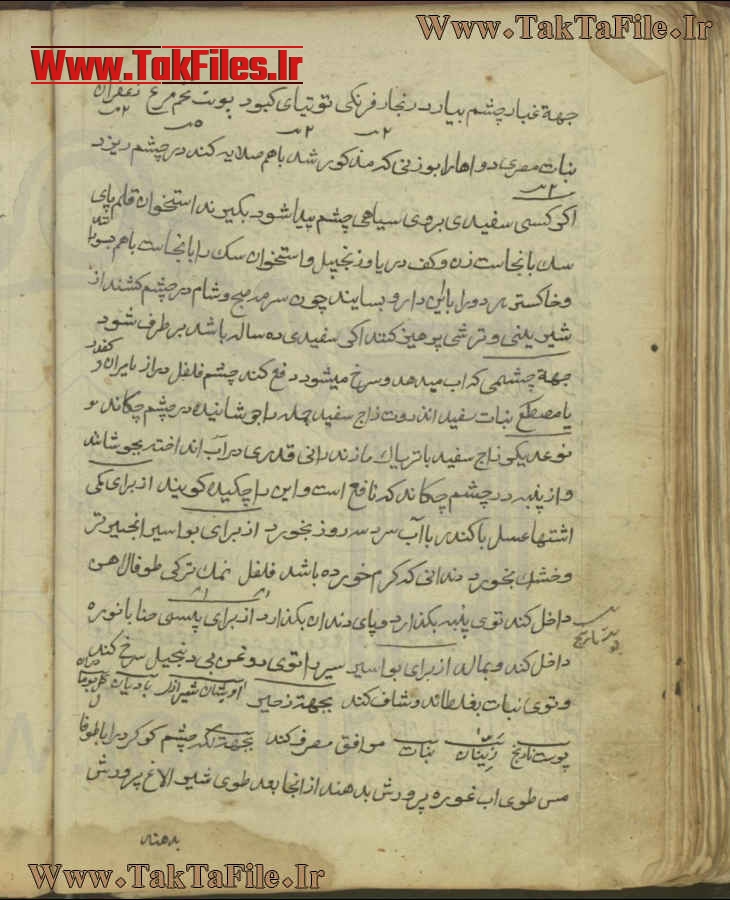 Www.TakTaFile.Ir
Www.TakFiles.Ir
جهة غبار چشم بیارد زنجار فرنکی توتیای کبود پوست تخم مرغ زعفران
نبات مصری دواها را بوزنی که مذکور شد باهم صلایه کند در چشم ریزد
اکر کسی سفیدی بروی سیاهی چشم پیدا شود بکیرند استخوان قلم پای
سک بانجاست زن و کف دریا و زنجبیل و استخوان سک را بانجاست باهم
و خاکستر هر دو را باین دارو بسایند چون سرمه صبح و شام در چشم کشند از
شیرینی و ترشی پرهیز کنند اکر سفیدی ده ساله باشد برطرف شود
جهة چشمی که آب میدهد و سرخ میشود دفع کند چشم فلفل دراز
یا مصطکی نبات سفید زاج سفید جمله را جوشانیده در چشم چکاند
نوعدیکر زاج سفید با تریاک مازندرانی قدری در آب انداخته بجوشانند
و از پنبه در چشم چکاند که نافع است و این را چکیده کویند از برای کمی
اشتها عسل با کندر با آب سرد سه روز بخورد از برای بواسیر انجیر تر
و خشک بخورد دندانی که کرم خورده باشد فلفل نمک ترکی
داخل کند توی پنبه بکذارد و پای دندان بکذارد از برای پیسی حنا با نوره
داخل کند و بماله از برای بواسیر سیر را توی روغن سرخ کند
و توی نبات بغلطاند و شاف کند بجهة زحیر آویشان شیرازی بادیان
پوست نارنج رنیان نبات موافق مصرف کند بجهة چشم کو کرد را با
مس طوی آب غوره پرورش بدهند از آنجا بعد طوی شیر الاغ پرورش
بدهند
Www.TakTaFile.Ir